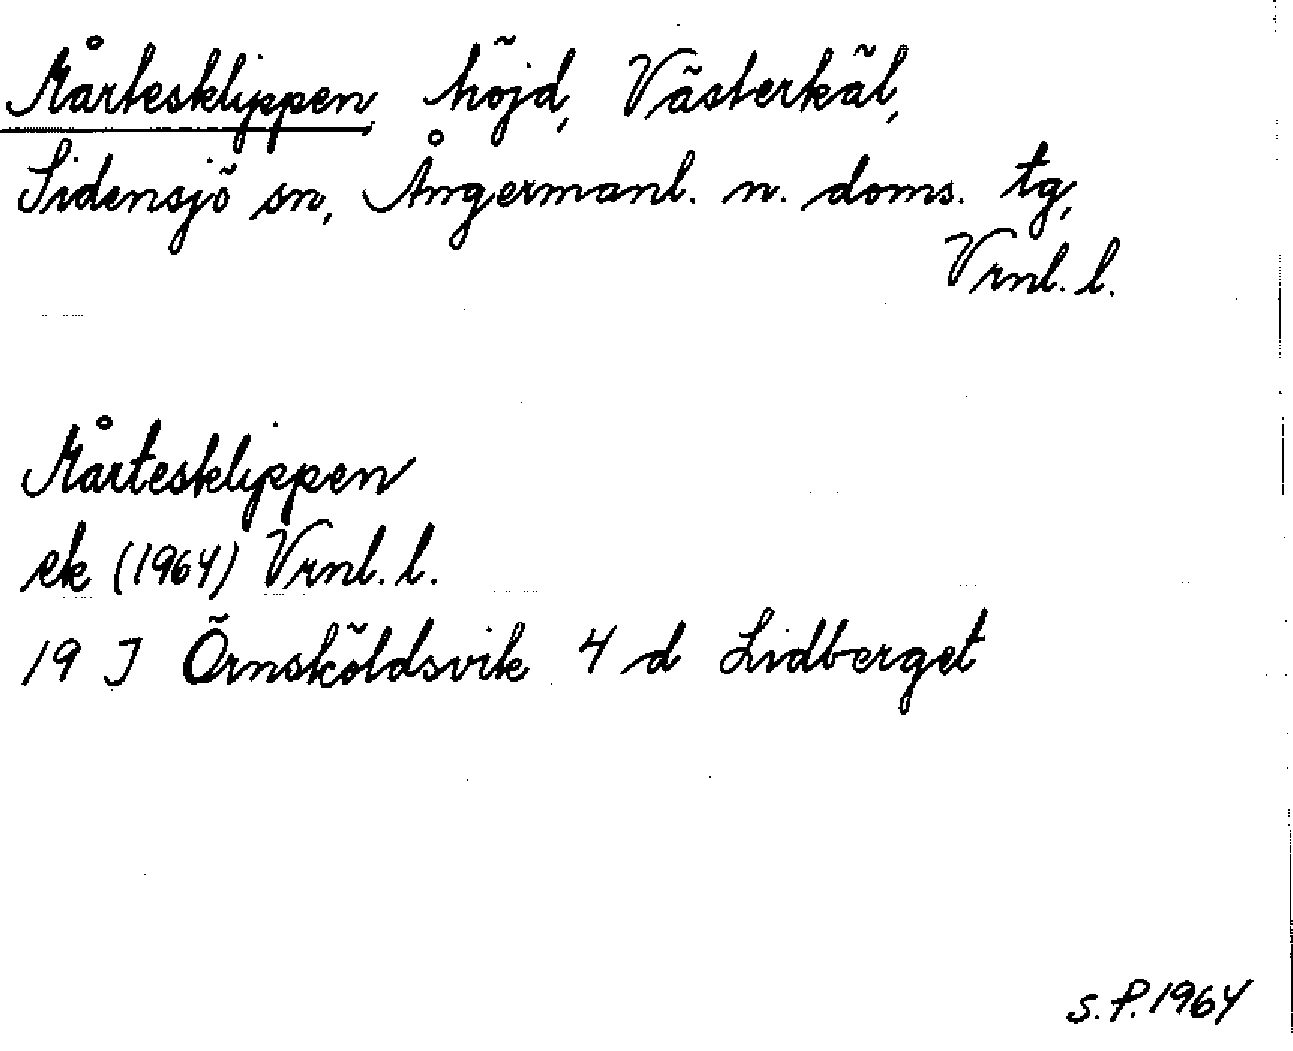 Mårtesklippen, höjd, Västerkäl,
Sidensjö sn, Ångermanl. n. doms. tg,
Vrnl. l.
Mårtesklippen
ek (1964) Vrnl. l.
19 J Örnsköldsvik 4 d Lidberget
S.P. 1964